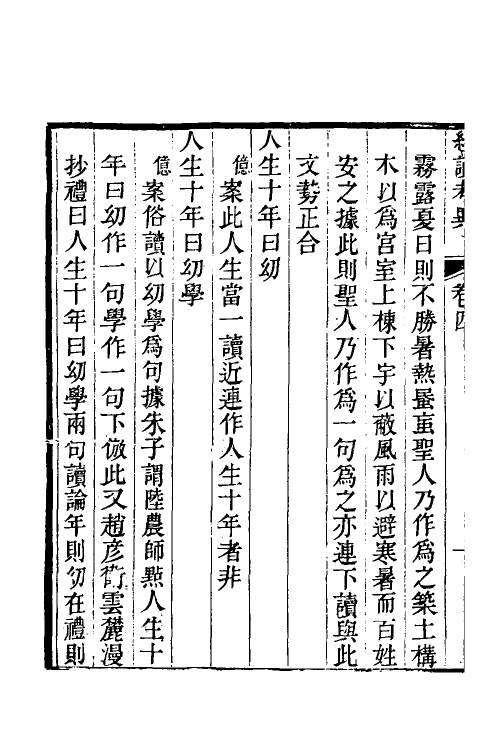 經讀考異 卷四 一
霧露夏日則不勝暑熱蜑䖟聖人乃作為之築土構
木以為宮室上棟下宇以蔽風雨以避寒暑而百姓
安之據此則聖人乃作為一句為之亦連下讀與此
文埶正合
人生十年曰幼
億案此人生當一讀近連作人生十年者非
人生十年曰幼學
億案俗讀以幼學為句據朱子謂陸農師㸃人生十
年曰幼作一句學作一句下倣此又趙彥衞雲麓漫
抄禮曰人生十年曰幼學兩句讀論年則幼在禮則